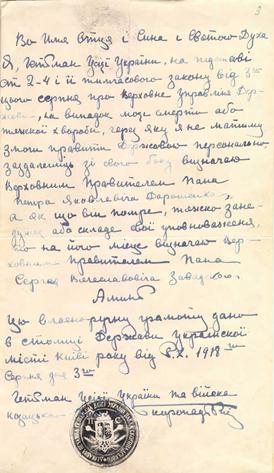 3
Во Имя Отця і Сина і Святого Духа
Я, Гетьман Усієї України, на підставі
арт 2-4 і ії тимчасового закону від 3го
цього серпня про Верховне Управління Дер-
жавою, на випадок моєї смерти або
тяжкої хвороби, через яку я не матиму
змоги правити Державою персонально
заздалегідь зі свого боку визначаю
Верховним Правителем Пана
Петра Яковлевича Дорошенка,
а як що він помре, тяжко зане-
дужає або складе свої уповноваження,
то на його місце визначаю Вер-
ховним Правителем Пана
Сергея Вячеславовіча Завадського.
Аминь
Цю власноручну грамоту дано
в столиці Держави Української
місті Київі року від Р.Х. 1918го
Серпня дня 3го
Гетьман Усієї України та війска
козацького Павло Скоропадський